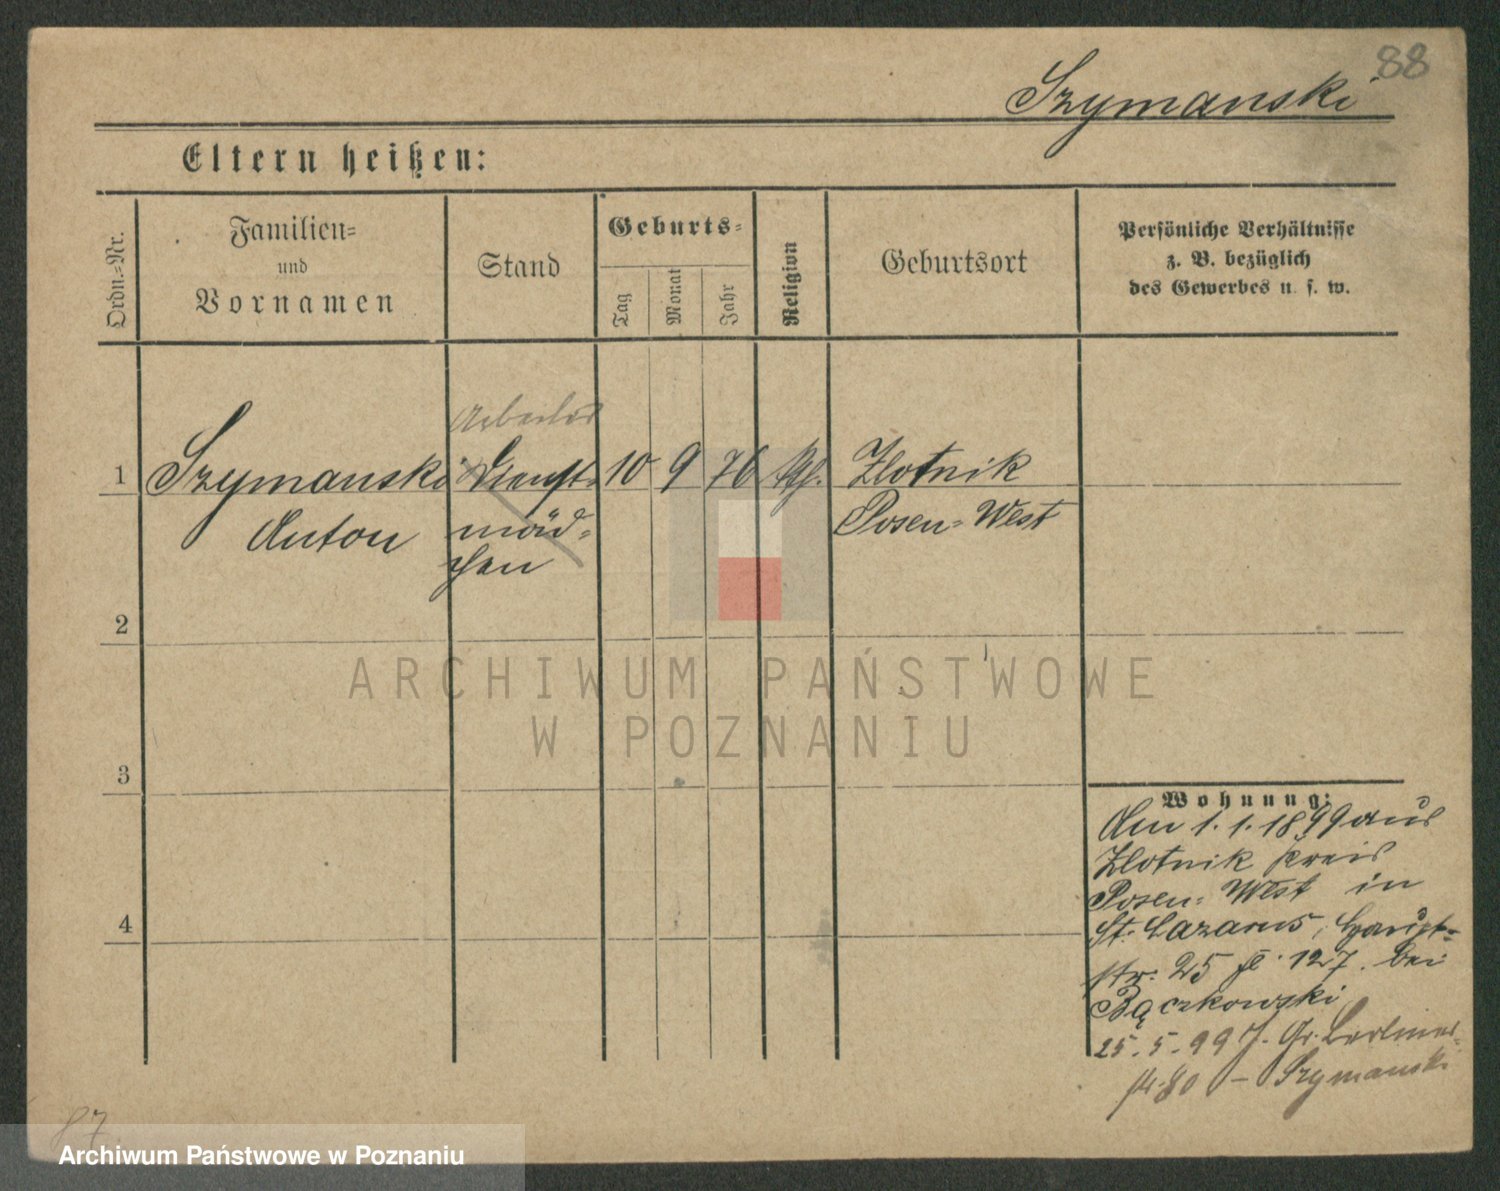 88
Szymanski
Eltern heißen:
Ordn.-Nr.
Familien-
und
Vornamen
Stand
Geburts-
Tag
Monat
Jahr
Religion
Geburtsort
Persönliche Verhältnisse
z. B. bezüglich
des Gewerbes u. s. w.
Arbeiter
1 Szymanski Dienst- 10 9 76 Kth. Zlotnik
Anton mäd- Posen-West
chen
2
3
4
ARCHIWUM PAŃSTWOWE
W POZNANIU
Wohnung:
Am 1.1.1899 aus
Zlotnik Kreis
Posen-West in
St. Lazarus, Haupt-
str. 25 fl. 127. bei
Bączkowski
25.5.99 J. Gr. Berliner-
str. 80 – Szymanski
87
Archiwum Państwowe w Poznaniu